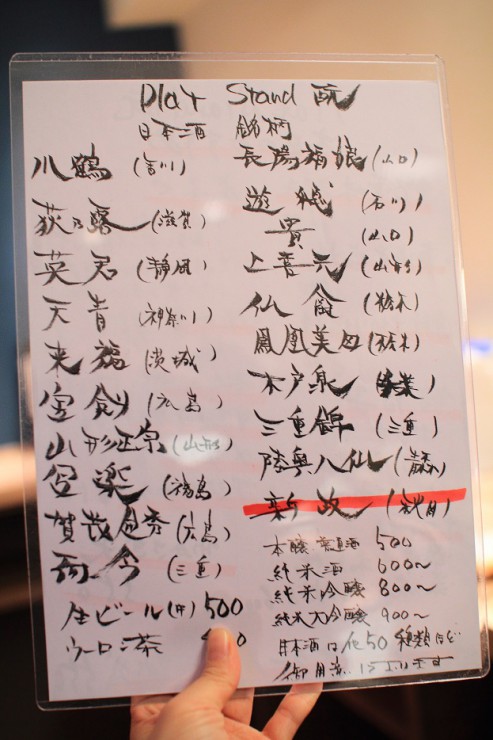 Play Stand 酛
日本酒 銘柄
川鶴 (香川)
萩乃露 (滋賀)
英君 (静岡)
天青 (神奈川)
来福 (茨城)
宝剣 (広島)
山形正宗 (山形)
(福島)
賀茂金秀 (広島)
而今 (三重)
生ビール(中) 500
ウーロン茶
長陽福娘 (山口)
遊穂 (石川)
貴 (山口)
上喜元 (山形)
仙禽 (栃木)
鳳凰美田 (栃木)
木戸泉 (千葉)
三重錦 (三重)
陸奥八仙 (青森)
新政 (秋田)
本醸 普通酒 500
純米酒 600〜
純米吟醸 800〜
純米大吟醸 900〜
日本酒は他50種類ほど
御用意しております